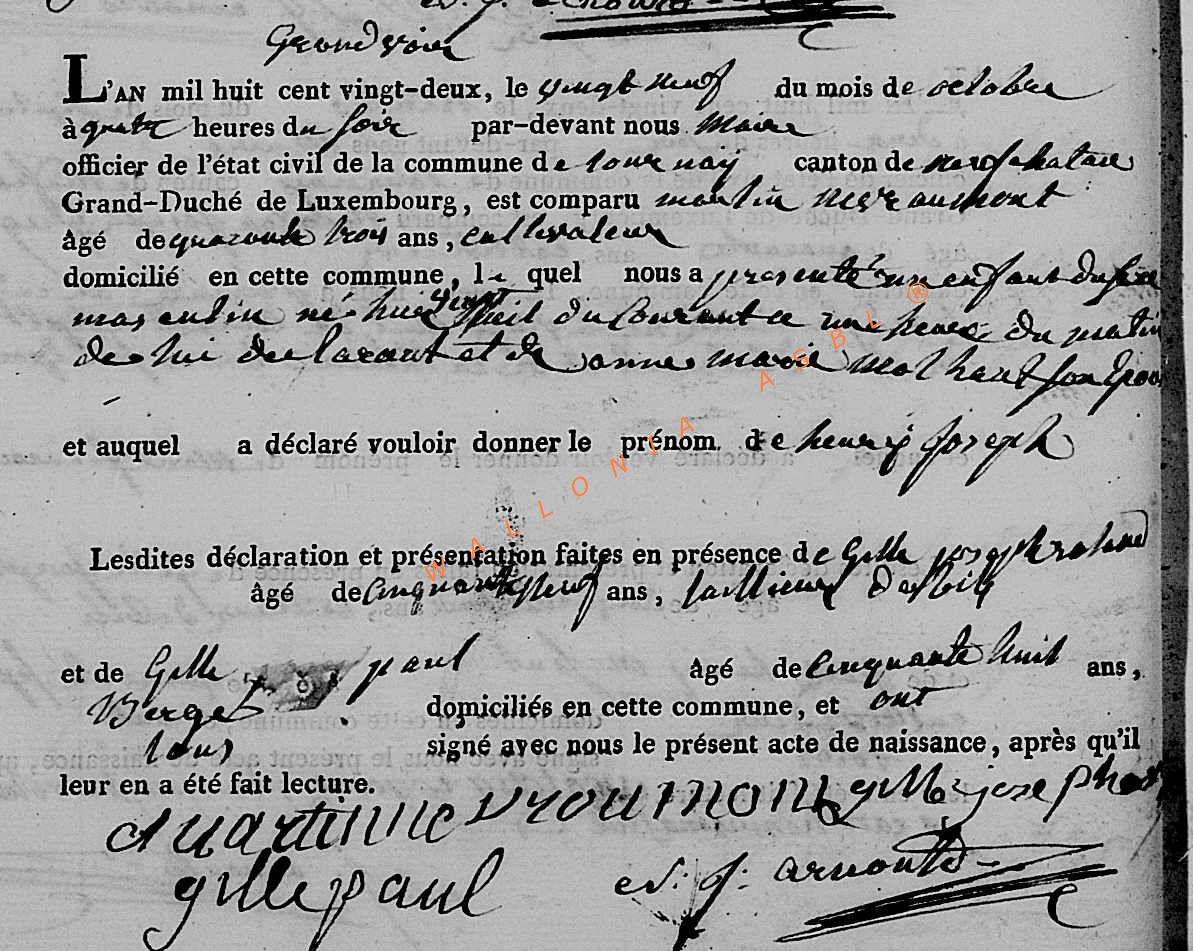 Grandvoir
L'AN mil huit cent vingt-deux, le vingt neuf du mois de octobre
à quatre heures du soir par-devant nous maire
officier de l'état civil de la commune de tournaÿ canton de neufchateau
Grand-Duché de Luxembourg, est comparu martin nevraumont
âgé de quarante trois ans, cultivateur
domicilié en cette commune, le quel nous a presenté un enfant du sexe
masculin né huit du Courant a une heure du matin
de lui declarant et de anne marie mathant son Epou
et auquel a déclaré vouloir donner le prénom de henrÿ joseph
Lesdites déclaration et présentation faites en présence de Gille joseph
âgé de Cinquante neuf ans,
et de Gille paul âgé de Cinquante huit ans,
Berger domiciliés en cette commune, et ont
tous signé avec nous le présent acte de naissance, après qu'il
leur en a été fait lecture.
Martin nevroumont gille joseph
gille paul ev: j: arnould
WALLONIA ASBL ®